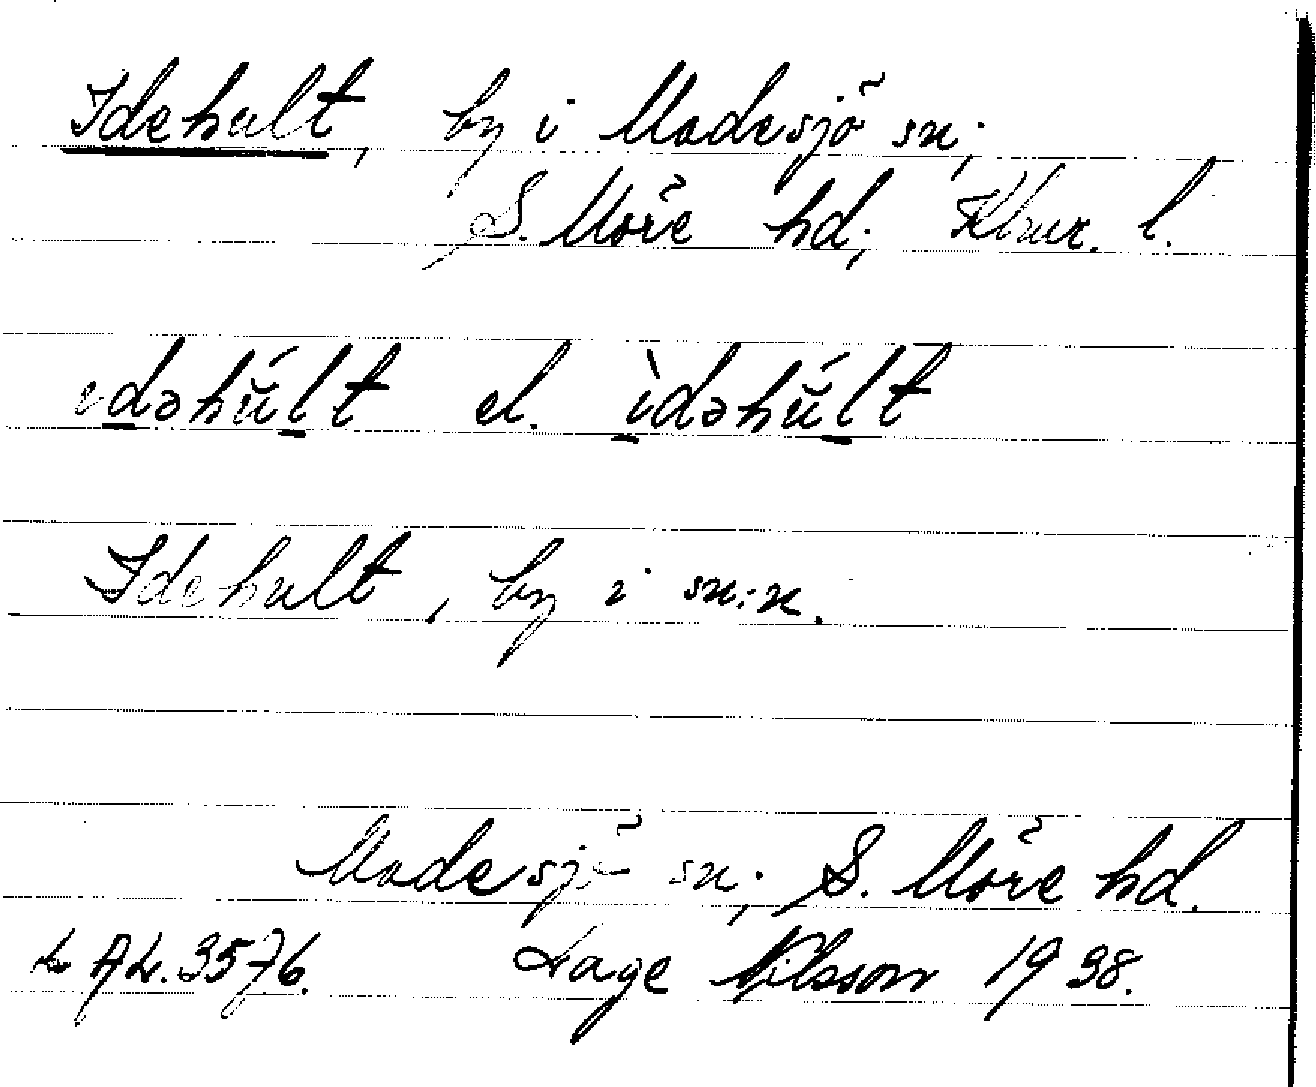 Idehult, by i Madesjö sn;
S. Möre hd; Klmr. l.
idəhúlt el. ìdəhúlt
Idehult, by i sn:n.
Madesjö sn; S. Möre hd.
LAL. 3576. Lage Nilsson 1938.